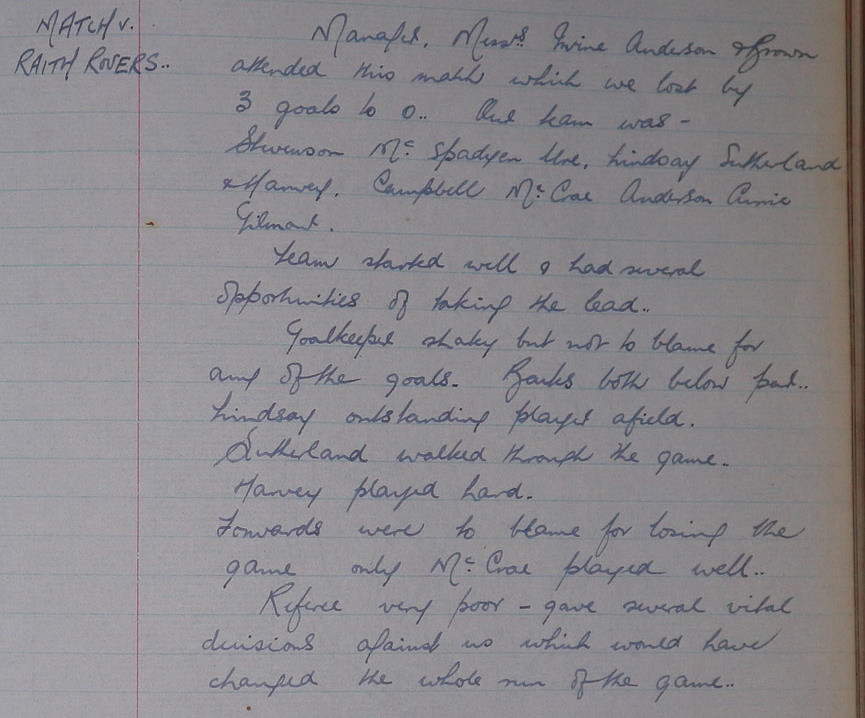 MATCH v.
RAITH ROVERS..
Manager, Messrs. Irvine Anderson & Brown
attended this match which we lost by
3 goals to 0.. Our team was -
Stevenson Mc Spadyen Ure, Lindsay Sutherland
& Harvey, Campbell Mc Crae Anderson
Gilmour.
Team started well & had several
opportunities of taking the lead..
Goalkeeper shaky but not to blame for
any of the goals. Backs both below par..
Lindsay outstanding player afield.
Sutherland walked through the game..
Harvey played hard.
Forwards were to blame for losing the
game only Mc Crae played well..
Referee very poor - gave several vital
decisions against us which would have
changed the whole run of the game..